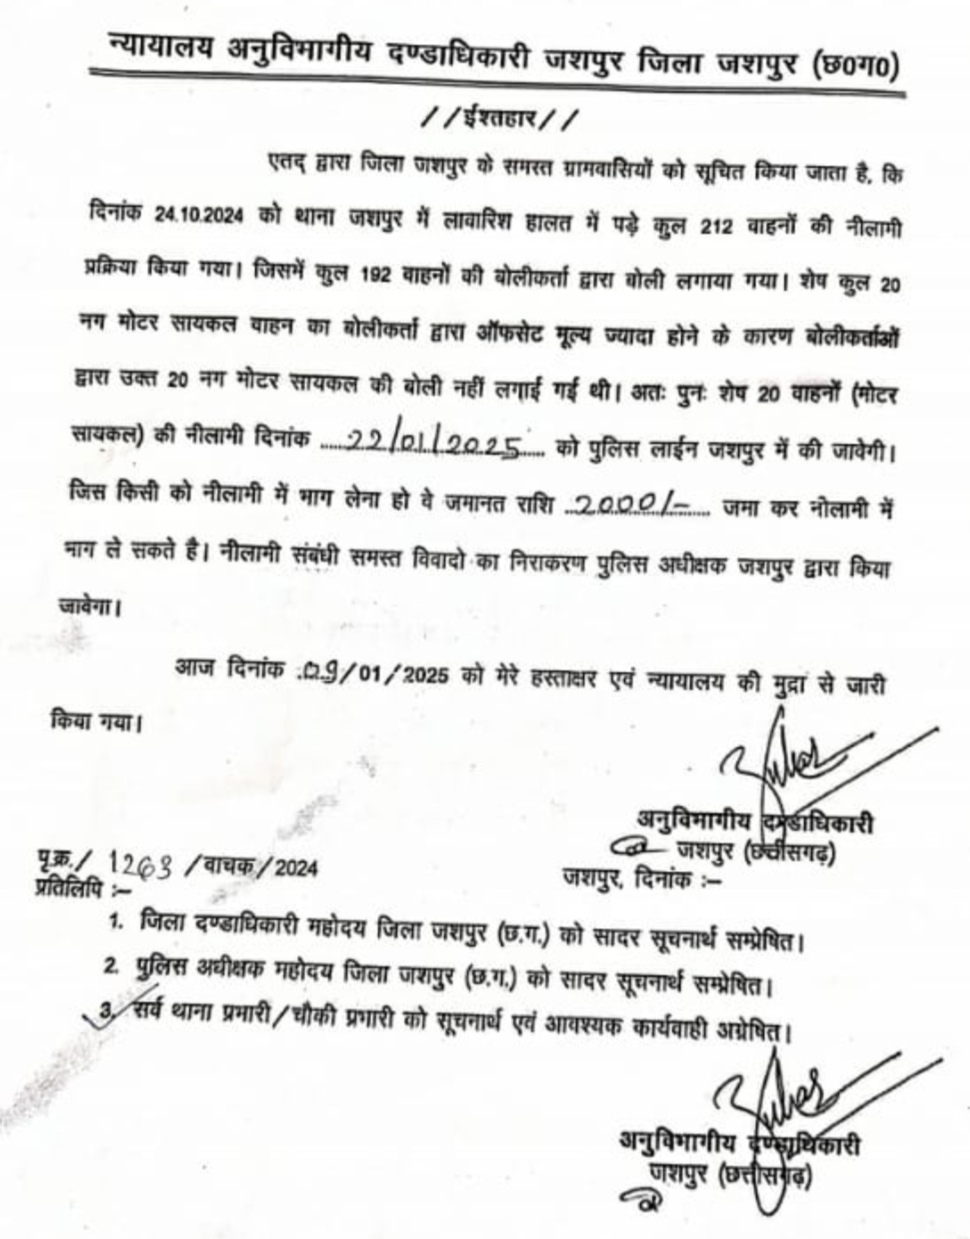 न्यायालय अनुविभागीय दण्डाधिकारी जशपुर जिला जशपुर (छ0ग0)
//ईश्तहार//
एतद् द्वारा जिला जशपुर के समस्त ग्रामवासियों को सूचित किया जाता है, कि
दिनांक 24.10.2024 को थाना जशपुर में लावारिश हालत में पड़े कुल 212 वाहनों की नीलामी
प्रक्रिया किया गया। जिसमें कुल 192 वाहनों की बोलीकर्ता द्वारा बोली लगाया गया। शेष कुल 20
नग मोटर सायकल वाहन का बोलीकर्ता द्वारा ऑफसेट मूल्य ज्यादा होने के कारण बोलीकर्ताओं
द्वारा उक्त 20 नग मोटर सायकल की बोली नहीं लगाई गई थी। अतः पुनः शेष 20 वाहनों (मोटर
सायकल) की नीलामी दिनांक ....22/01/2025.... को पुलिस लाईन जशपुर में की जावेगी।
जिस किसी को नीलामी में भाग लेना हो वे जमानत राशि ..2000/-.... जमा कर नीलामी में
भाग ले सकते है। नीलामी संबंधी समस्त विवादो का निराकरण पुलिस अधीक्षक जशपुर द्वारा किया
जावेगा।
आज दिनांक .09/01/2025 को मेरे हस्ताक्षर एवं न्यायालय की मुद्रा से जारी
किया गया।
अनुविभागीय दण्डाधिकारी
जशपुर (छत्तीसगढ़)
पृ.क्र./ 1263 /वाचक/2024
जशपुर, दिनांक :–
प्रतिलिपि :–
1. जिला दण्डाधिकारी महोदय जिला जशपुर (छ.ग.) को सादर सूचनार्थ सम्प्रेषित।
2. पुलिस अधीक्षक महोदय जिला जशपुर (छ.ग.) को सादर सूचनार्थ सम्प्रेषित।
3. सर्व थाना प्रभारी/चौकी प्रभारी को सूचनार्थ एवं आवश्यक कार्यवाही अग्रेषित।
अनुविभागीय दण्डाधिकारी
जशपुर (छत्तीसगढ़)